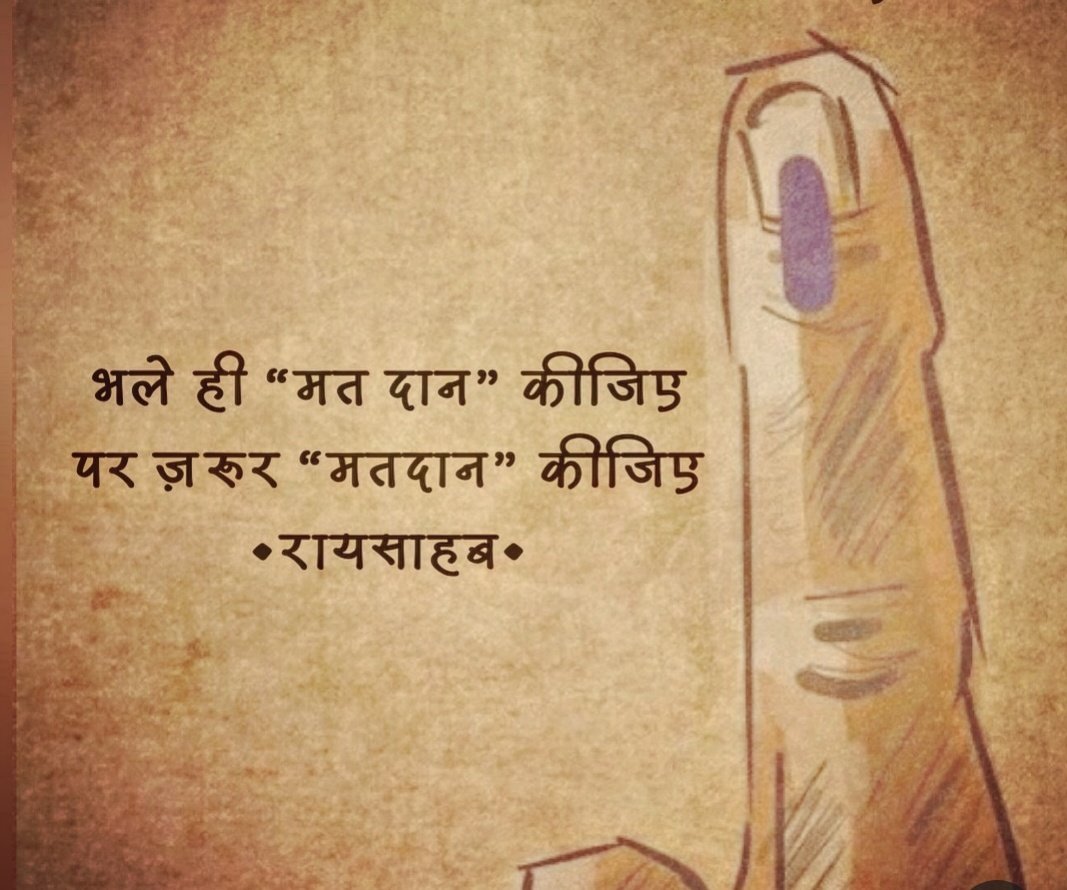 भले ही “मत दान” कीजिए
पर ज़रूर “मतदान” कीजिए
•रायसाहब•